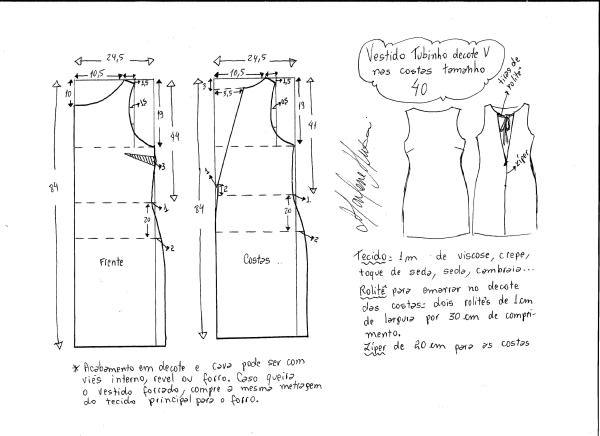 24,5
10,5
1,5
10
1,5
19
44
3
84
1
20
2
Frente
24,5
10,5
1,5
3
5,5
1,5
19
41
2
84
1
20
2
Costas
Vestido Tubinho decote V
nas costas tamanho
40
tiras de
rolitê
zíper
Tecido = 1m de viscose, crepe,
toque de seda, seda, cambraia...
Rolitê para amarrar no decote
das costas = dois rolitês de 1 cm
de largura por 30 cm de compri-
mento.
Zíper de 20 cm para as costas
* Acabamento em decote e cava pode ser com
viés interno, revel ou forro. Caso queira
o vestido forrado, compre a mesma metragem
do tecido principal para o forro.